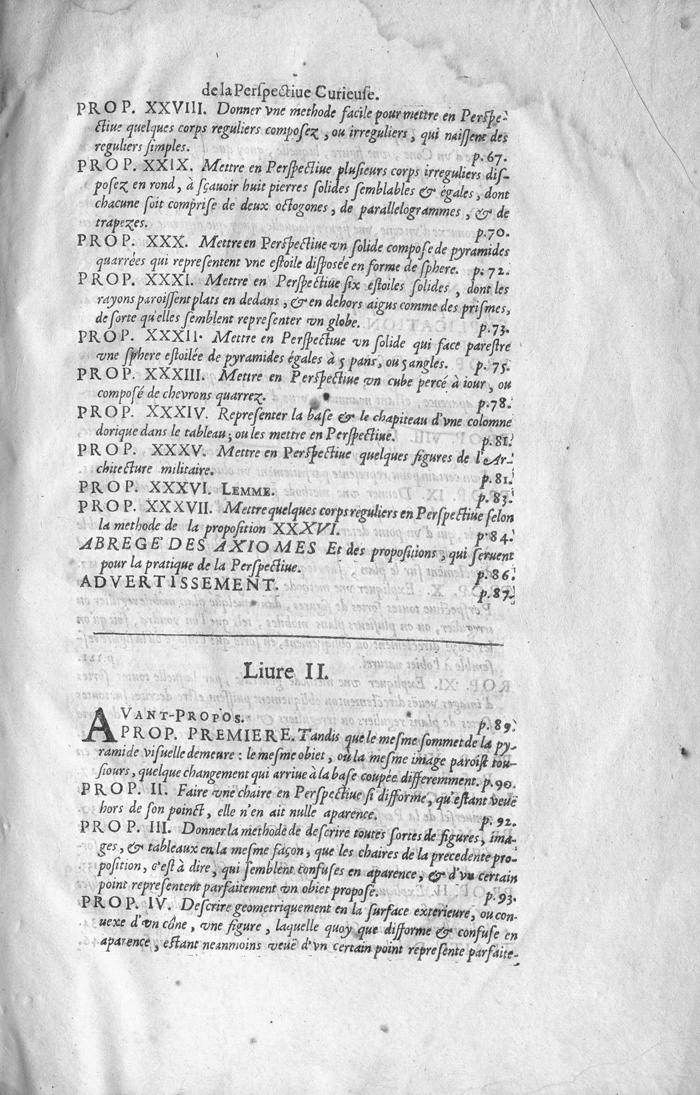 de la Perspectiue Curieuse.
PROP. XXVIII. Donner vne methode facile pour mettre en Perspe-
ctiue quelques corps reguliers composez, ou irreguliers, qui naissent des
reguliers simples. p. 67.
PROP. XXIX. Mettre en Perspectiue plusieurs corps irreguliers dis-
posez en rond, à sçauoir huit pierres solides semblables & égales, dont
chacune soit comprise de deux octogones, de parallelogrammes, & de
trapezes. p. 70.
PROP. XXX. Mettre en Perspectiue vn solide composé de pyramides
quarrées qui representent vne estoile disposée en forme de sphere. p. 72.
PROP. XXXI. Mettre en Perspectiue six estoiles solides, dont les
rayons paroissent plats en dedans, & en dehors aigus comme des prismes,
de sorte qu'elles semblent representer vn globe. p. 73.
PROP. XXXII. Mettre en Perspectiue vn solide qui face parestre
vne sphere estoilée de pyramides égales à 5 pans, ou 5 angles. p. 75.
PROP. XXXIII. Mettre en Perspectiue vn cube percé à iour, ou
composé de chevrons quarrez. p. 78.
PROP. XXXIV. Representer la base & le chapiteau d'vne colomne
dorique dans le tableau; ou les mettre en Perspectiue. p. 81.
PROP. XXXV. Mettre en Perspectiue quelques figures de l'Ar-
chitecture militaire. p. 81.
PROP. XXXVI. LEMME. p. 83.
PROP. XXXVII. Mettre quelques corps reguliers en Perspectiue selon
la methode de la proposition XXXVI. p. 84.
ABREGÉ DES AXIOMES Et des propositions, qui seruent
pour la pratique de la Perspectiue. p. 86.
ADVERTISSEMENT. p. 87.
Liure II.
AVANT-PROPOS. p. 89.
PROP. PREMIERE. Tandis que le mesme sommet de la py-
ramide visuelle demeure: le mesme obiet, ou la mesme image paroist tou-
siours, quelque changement qui arriue à la base coupée differemment. p. 90.
PROP. II. Faire vne chaire en Perspectiue si difforme, qu'estant veuë
hors de son poinct, elle n'en ait nulle aparence. p. 92.
PROP. III. Donner la methode de descrire toutes sortes de figures, ima-
ges, & tableaux en la mesme façon, que les chaires de la precedente pro-
position, c'est à dire, qui semblent confuses en aparence, & d'vn certain
point representent parfaitement vn obiet proposé. p. 93.
PROP. IV. Descrire geometriquement en la surface exterieure, ou con-
uexe d'vn cône, vne figure, laquelle quoy que difforme & confuse en
aparence, estant neanmoins veuë d'vn certain point represente parfaite-